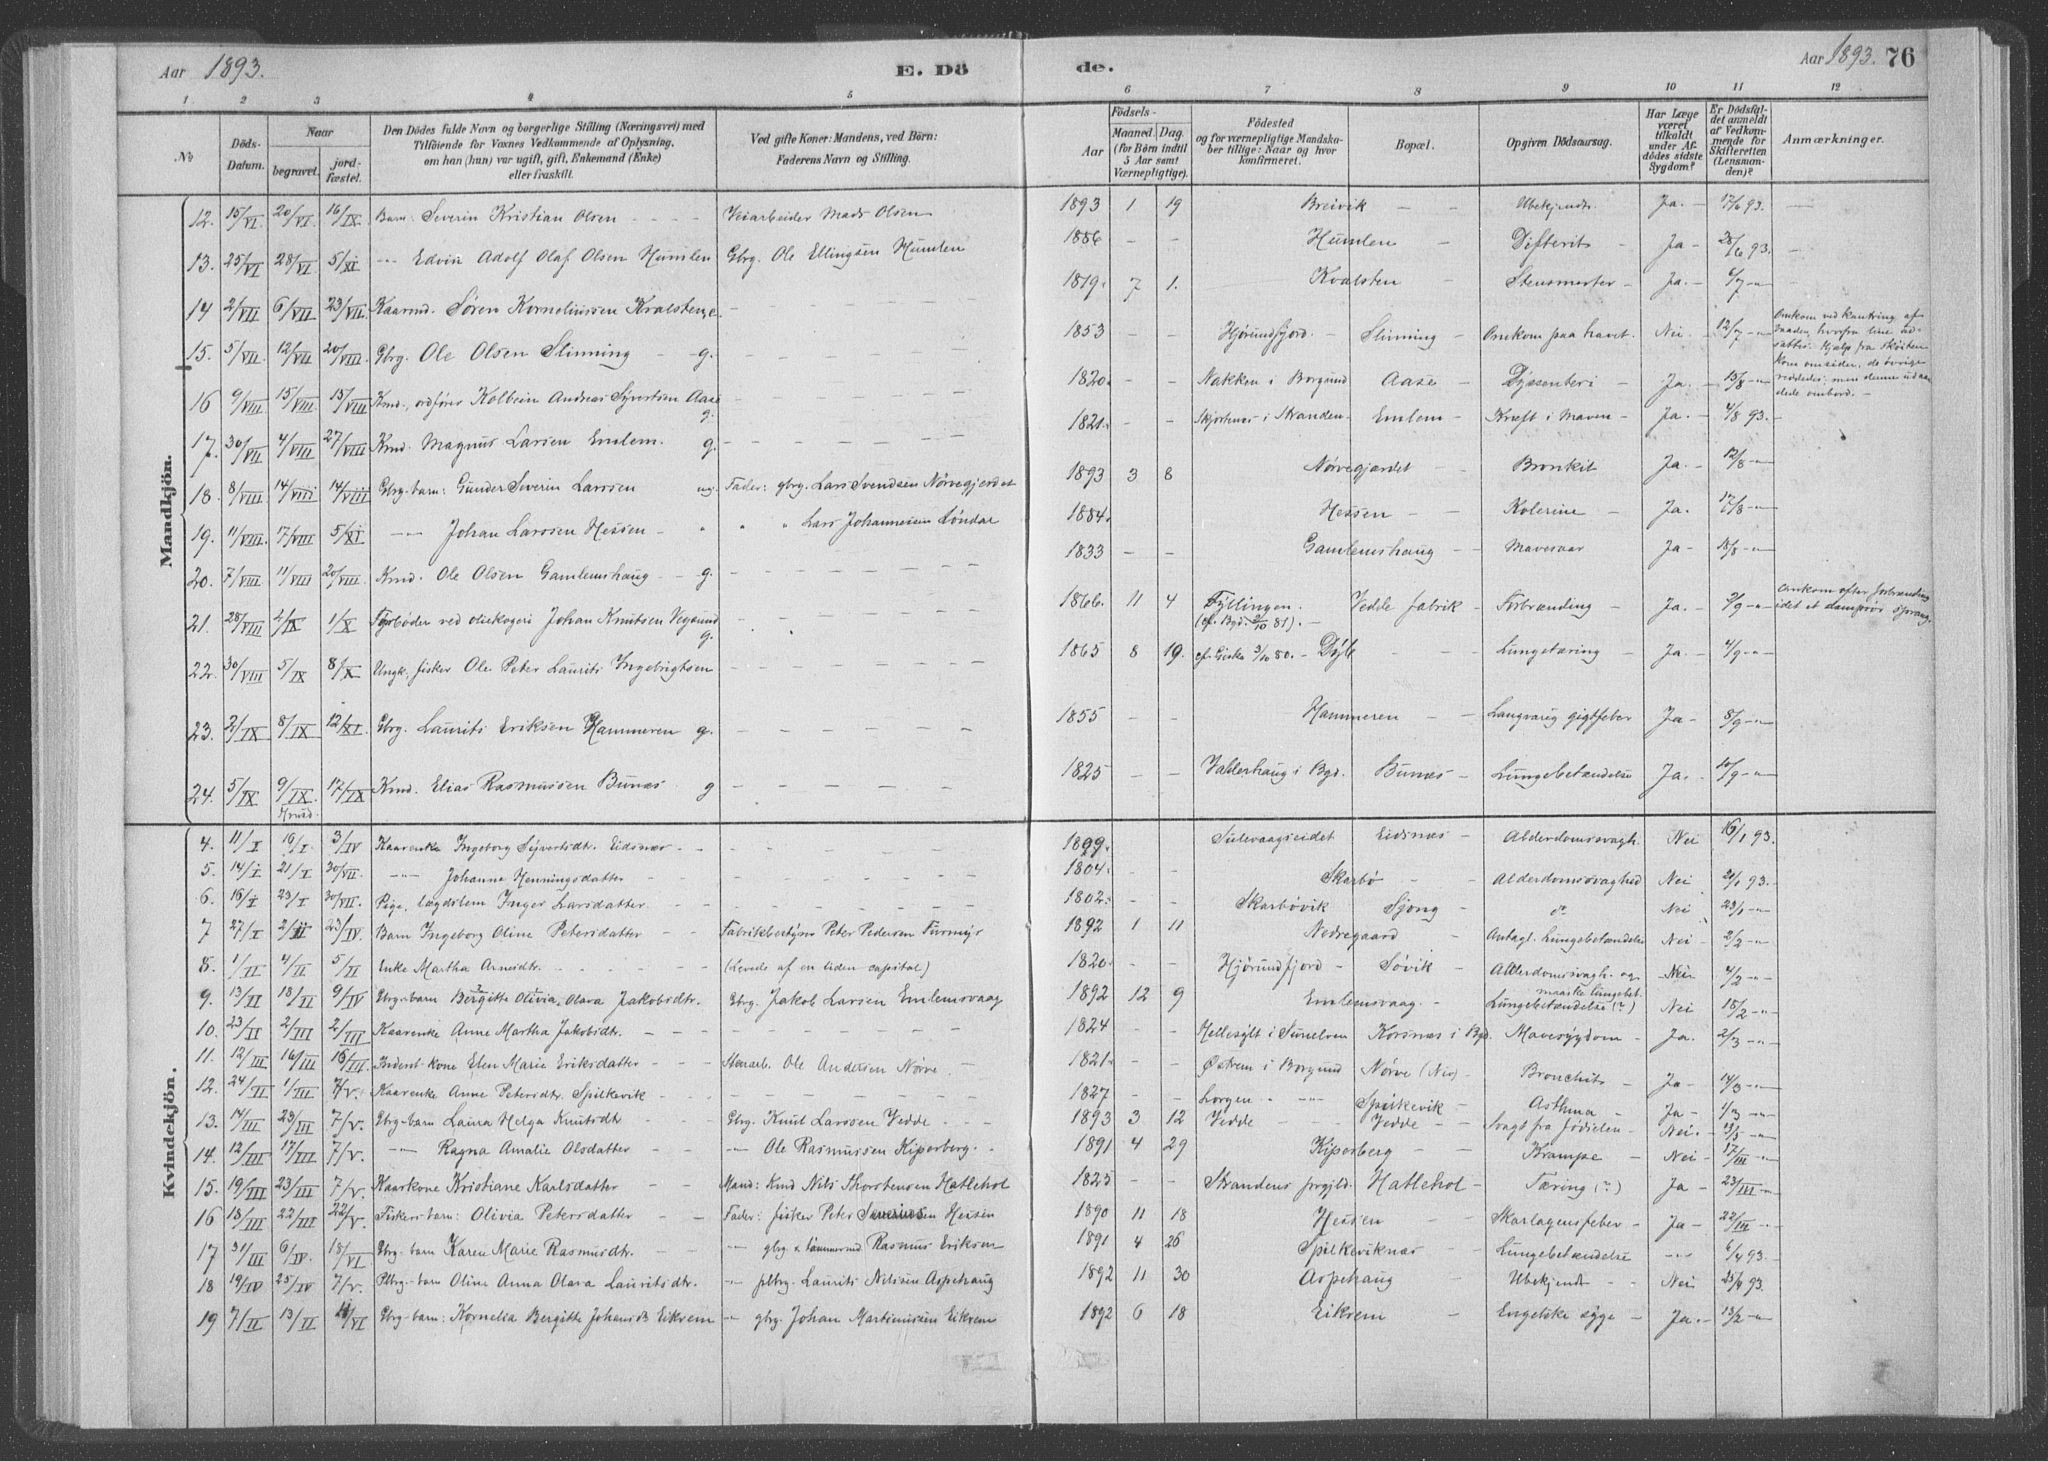 Aar 1893. E. Dö
1 2 3 4 5
No Döds-Datum. Naar begravet. jord-fæstet. Den Dödes fulde Navn og borgerlige Stilling (Næringsvei) med Tilföiende for Voxnes Vedkommende af Oplysning, om han (hun) var ugift, gift, Enkemand (Enke) eller fraskilt. Ved gifte Koner: Mandens, ved Börn: Faderens Navn og Stilling.
Mandkjön.
12. 15/VI 20/VI 16/IX Barn: Severin Kristian Olsen Veiarbeider Mads Olsen
13. 25/VI 28/VI 5/XI -"- Edvin Adolf Olaf Olsen Humlen Gbrg. Ole Ellingsen Humlen
14 2/VII 6/VII 23/VII. Kaarmd. Søren Korneliussen Kvalsten, e.
15. 5/VII. 12/VII 20/VIII. Gbrg. Ole Olsen Slinning g.
16 9/VIII 15/VIII. 15/VIII Kmd., ordfører Kolbein Andreas Syvertsen Aase g.
17. 30/VII 4/VIII 27/VIII Kmd. Magnus Larsen Emlem. g.
18. 8/VIII 14/VIII 14/VIII Gbrg-barn: Gunder Severin Larssen Fader: gbrg. Lars Svendsen Nørvegjerdet
19. 11/VIII. 17/VIII 5/XI -"- Johan Larssen Hessen " " Lars Johannessen
20. 7/VIII 11/VIII 20/VIII. Kmd. Ole Olsen Gamlemshaug g.
21. 28/VIII 2/IX 1/X Fyrbøder ved oliekogeri Johan Knutsen Vegsund g.
22. 30/VIII 5/IX 8/X Ungk., fisker Ole Peter Laurits Ingebrigtsen
23. 2/IX 8/IX 12/XI. Gbrg. Laurits Eriksen Hammeren g.
24. 5/IX 9/IX. 17/IX Kmd. Elias Rasmussen Bunæs g
Kvindekjön.
4. 11/I 16/I. 3/IV Kaarenke Ingeborg Syvertsdtr. Eidsnæs
5. 14/I 21/I 30/VII -"- Johanne Henningsdatter
6. 16/I 23/I 30/VII. Pige, lægdslem Inger Larsdatter
7 27/I 2/II 23/IV. Barn Ingeborg Oline Petersdatter Fabrikbestyrer Peter Pedersen Furmyr
8. 1/II 4/II 5/II Enke Martha Arnesdtr. (Levede af en liden capital)
9. 13/II 18/II 9/IV Gbrg-barn Bergitte Olivia Olava Jakobsdtr. Gbrg. Jakob Larsen Emlemsvaag
10. 23/II 2/III 2/III Kaarenke Anne Martha Jakobsdtr.
11. 12/III 16/III 16/III. Inderst-kone Elen Marie Eriksdatter Ole Andersen Nørve.
12. 24/II 1/III 7/V. Kaarenke Anne Petersdtr. Spilkevik
13. 14/III 23/III 7/V. Gbrg-barn Laura Helga Knutsdtr Gbrg. Knut Larssen Vedde
14. 12/III 17/III 7/V. -"- Ragna Amalie Olsdatter -"- Ole Rasmussen Kiperberg.
15. 19/III 23/III 7/V. Kaarkone Kristiane Karlsdatter Mand: Kmd Nils Thorstensen Hatlehol
16 18/III 22/III 22/V. Fisker-barn: Olivia Petersdatter Fader: fisker Peter Severinsen Hessen
17 31/III 6/IV. 18/VI Gbrg-barn Karen Marie Rasmusdtr. -"- gbrg & tømmermd Rasmus Eriksen
18 19/IV 25/IV 7/V. Plbrg-barn Oline Anna Olava Lauritsdtr. -"- plbrg. Laurits Nilssen Aspehaug
19 7/II 13/II /VI Gbrg-barn: Kornelia Bergitte Johansdtr Eikrem -"- gbrg. Johan Martinussen Eikrem
de. Aar 1893. 76
6 7 8 9 10 11 12
Födsels- Aar Maaned. Dag. (for Börn indtil 5 Aar samt Værnepligtige). Födested og for værnepligtige Mandskaber tillige: Naar og hvor konfirmeret. Bopæl. Opgiven Dödsaarsag. Har Læge været tilkaldt under Afdödes sidste Sygdom? Er Dödsfaldet anmeldt af Vedkommende for Skifteretten (Lensmanden)? Anmærkninger.
1893 1 19 Breivik Ubekjendt. Ja. 17/6 93.
1886 Humlen Difterit Ja 28/6 93.
1819. 7 1. Kvalsten Stensmerter Ja. 6/7 -"-
1853 Hjørundfjord. Slinning Omkom paa havet. Nei 12/7 -"- Omkom ved kantring af baaden, hvorfra line udsattes. Hjælp fra skøiten kom omsider, de øvrige reddedes; men denne udaandede ombord.
1820. Nakken i Borgund Aase Dyssenteri Ja. 15/8 -"-
1821. Skjortnes i Stranden Emlem Kræft i Maven Ja. 4/8 93.
1893 3 8 Nørvegjærdet Bronkit Ja. 12/8 -"-
1884. Hessen Kolerine Ja. 17/8 -"-
1833 Gamlemshaug Mavesaar Ja 18/8 -"-
1866. 11 4 Fyllingen. (cf. Bgd. 2/10 81). Vedde fabrik Forbrænding Ja. 2/9 -"- Omkom efter forbrænding idet et damprør sprang.
1865 8 19. cf. Giske 3/10 80. Dyb Lungetæring Ja. 4/9 -"-
1855 Hammeren Langvarig gigtfeber Ja 8/9 -"-
1825 Valderhaug i Bgd. Bunæs Lungebetændelse Ja. 10/9 -"-
Sulevaagseidet Eidsnæs Alderdomssvagh. Nei 16/1 93.
1804. Skarbø Alderdomssvaghed Nei 21/1 93.
1802. Skarbøvik Sjong do Nei 23/1 -"-
1892 1 11 Nedregaard Antagl. Lungebetændelse Nei 2/2 -"-
1820. Hjørundfjord Søvik Alderdomsvagh. og maaske lungebet. Nei 4/2 -"-
1892 12 9 Emlemsvaag. Lungebetændelse (?) Nei 15/2 -"-
1824 Hellesylt i Sunelven Korsnæs i Bgd. Mavesygdom Ja. 2/3 -"-
1821. Østrem i Borgund Nørve (Nio) Bronchits Ja 14/3 -"-
1827 Lorgen -"- Spilkevik Asthma Ja 1/3 -"-
1893 3 12 Vedde Vedde Svagt fra fødselen Nei. 13/5 -"-
1891 4 29 Kiperberg Krampe Nei 17/III -"-
1825 Strandens prgjld. Hatlehol Tæring (?) Ja 23/III -"-
1890 11 18 Hessen Skarlagensfeber Ja 22/III -"-
1891 4 26 Spilkeviknæs Lungebetændelse -"- 6/4 93.
1892 11 30 Aspehaug Ubekjendt Nei 25/4 93.
1892 6 18 Eikrem Engelske syge Ja. 13/2 -"-